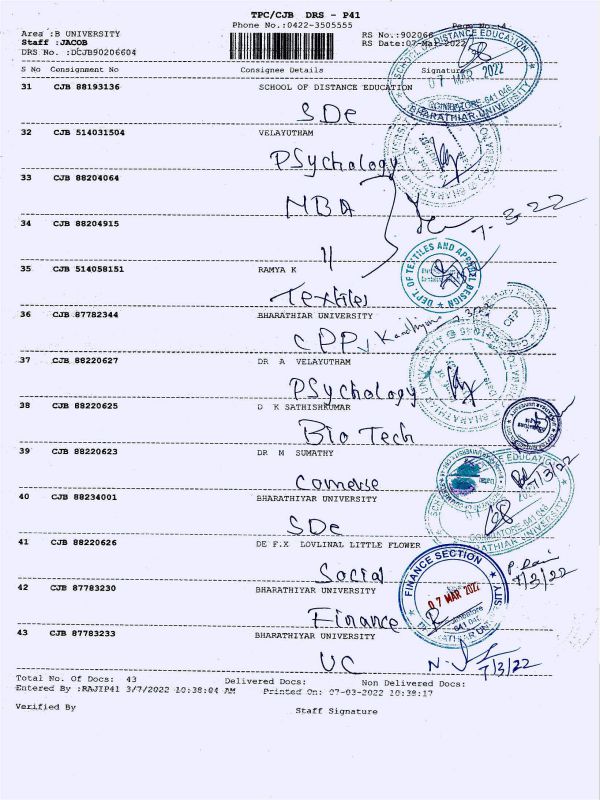 TPC/CJB DRS - P41
Phone No.:0422-3505555
Page No.:4
Area :B UNIVERSITY
RS No.:902066
Staff :JACOB
RS Date:07-Mar-2022
DRS No. :DCJB90206604
S No Consignment No Consignee Details Signature
31 CJB 88193136 SCHOOL OF DISTANCE EDUCATION
SDe
32 CJB 514031504 VELAYUTHAM
PSychology
33 CJB 88204064
MBA
7-3-22
34 CJB 88204915
11
35 CJB 514058151 RAMYA K
Textiles
36 CJB 87782344 BHARATHIAR UNIVERSITY
CPP
37 CJB 88220627 DR A VELAYUTHAM
PSychology
38 CJB 88220625 D K SATHISHKUMAR
Bio Tech
39 CJB 88220623 DR M SUMATHY
Comerse
7/3/22
40 CJB 88234001 BHARATHIYAR UNIVERSITY
SDe
41 CJB 88220626 DE F.X LOVLINAL LITTLE FLOWER
Social
7/3/22
42 CJB 87783230 BHARATHIYAR UNIVERSITY
Finance
43 CJB 87783233 BHARATHIYAR UNIVERSITY
UC
7/3/22
Total No. Of Docs: 43 Delivered Docs: Non Delivered Docs:
Entered By :RAJIP41 3/7/2022 10:38:04 AM Printed On: 07-03-2022 10:38:17
Verified By Staff Signature
SCHOOL OF DISTANCE EDUCATION
07 MAR 2022
COIMBATORE-641 046
BHARATHIAR UNIVERSITY
DEPT. OF TEXTILES AND APPAREL DESIGN
CPP
FINANCE SECTION
07 MAR 2022